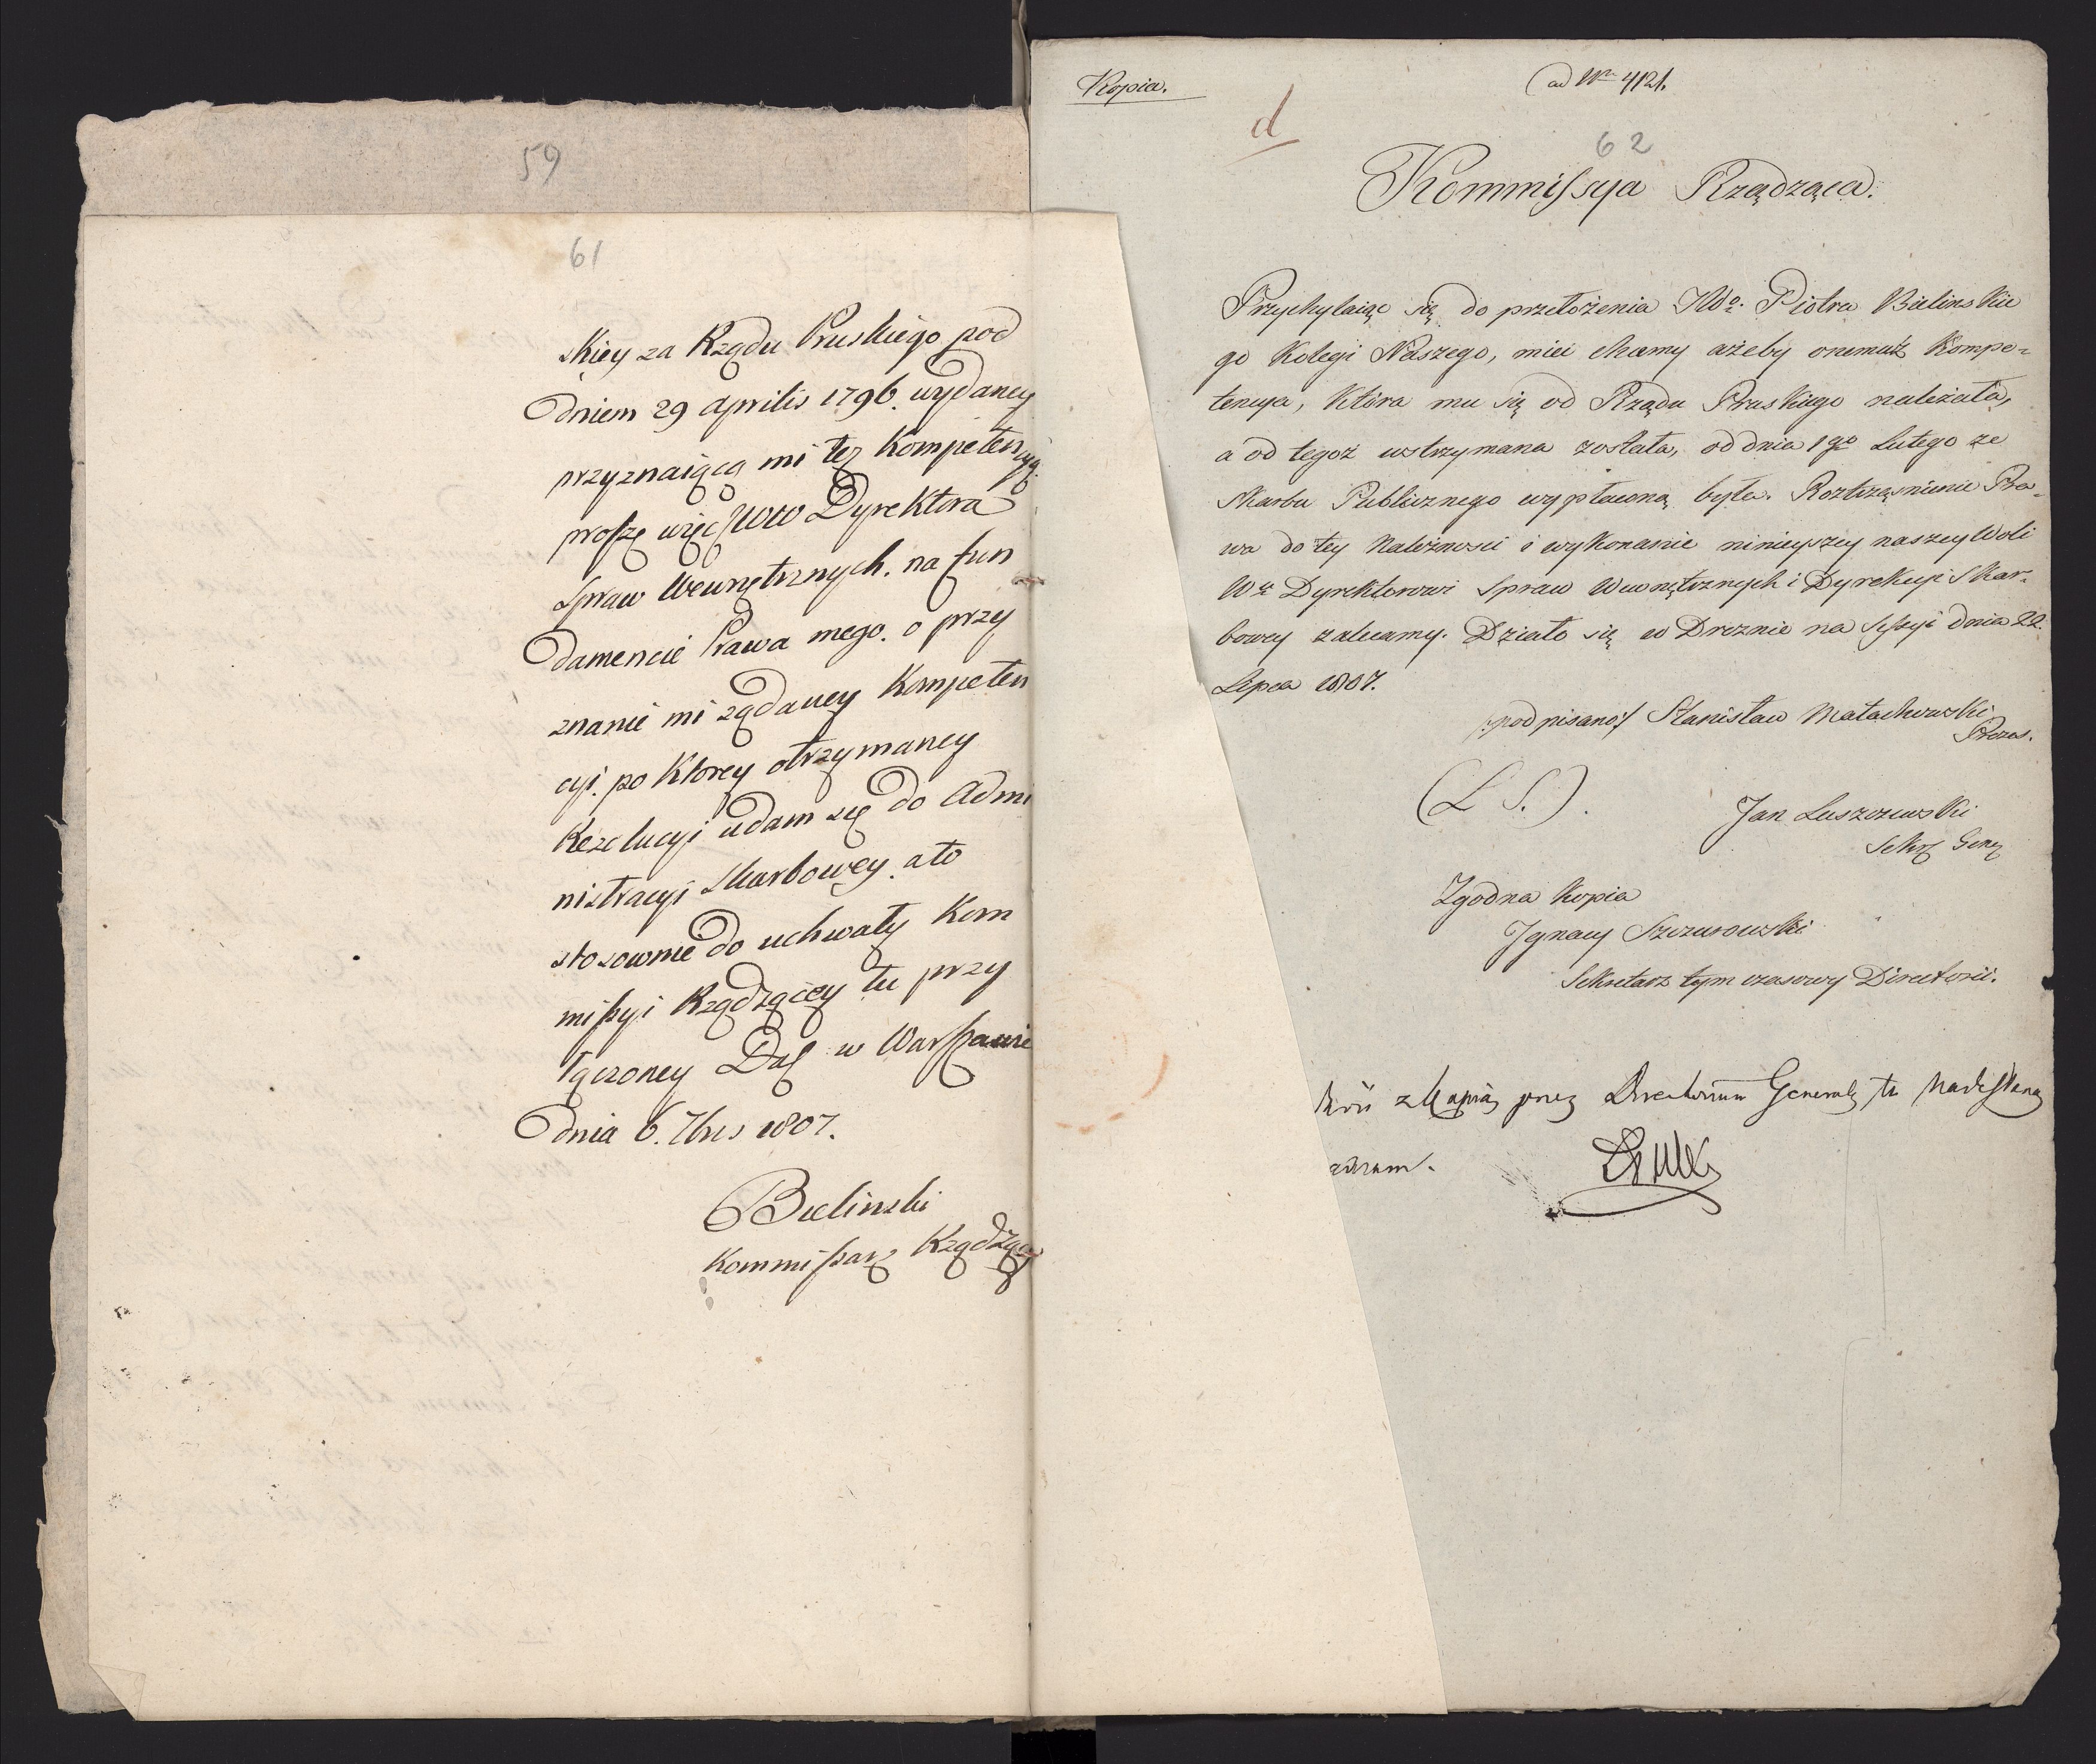 59
61
skiey za Rządu Pruskiego pod
dniem 29 Aprilis 1796. wydaney
przyznaiącą mi tę Kompetencyą.
proszę więc JWW Dyrektora
Spraw Wewnętrznych. na fun
damencie Prawa mego. o przy
znanie mi żądaney Kompeten
cyi. po Ktorey otrzymaney
Rezolucyi udam się do Admi
nistracyi Skarbowey. a to
stosownie do uchwały Kom
missyi Rządzącey tu przy
łączoney Dat w Warszawie
dnia 6. 7bris 1807.
Bielinski
Kommissarz Rządzący
Kopia.
ad Nr 4121.
d
62
Kommissya Rządząca.
Przychylaiąc się do przełożenia JWo. Piotra Bielinskie
go Kolegi Naszego, mieć chcemy ażeby onemuż Kompe=
tencya, Która mu się od Rządu Pruskiego należała,
a od tegoż wstrzymana została, od dnia 1go Lutego ze
Skarbu Publicznego wypłaconą była. Roztrząsnienie Pra=
wa do tey Należnosci i wykonanie ninieyszey naszey Woli
Wu Dyrektorowi Spraw Wewnętrznych i Dyrekcyi Skar=
bowey zalecamy. Działo się w Dreznie na Sessyi dnia 22.
Lipca 1807.
/:podpisano:/ Stanisław Małachowski
Prezes.
(L S.).
Jan Luszczewski
Sekr Gen
Zgodna Kopia
Ignacy Szczurowski
Sekretarz tymczasowy Directorii.
z Kopią przez Directorium Generale tu nadesłaną